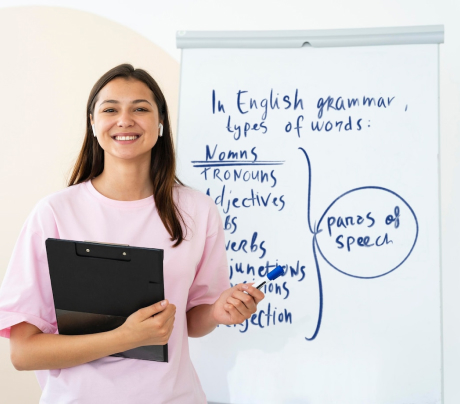 In English grammar,
types of words:
Nomns
PRONOUNS
Adjectives
bs
verbs
junctions
sitions
rjection
paros of
speech